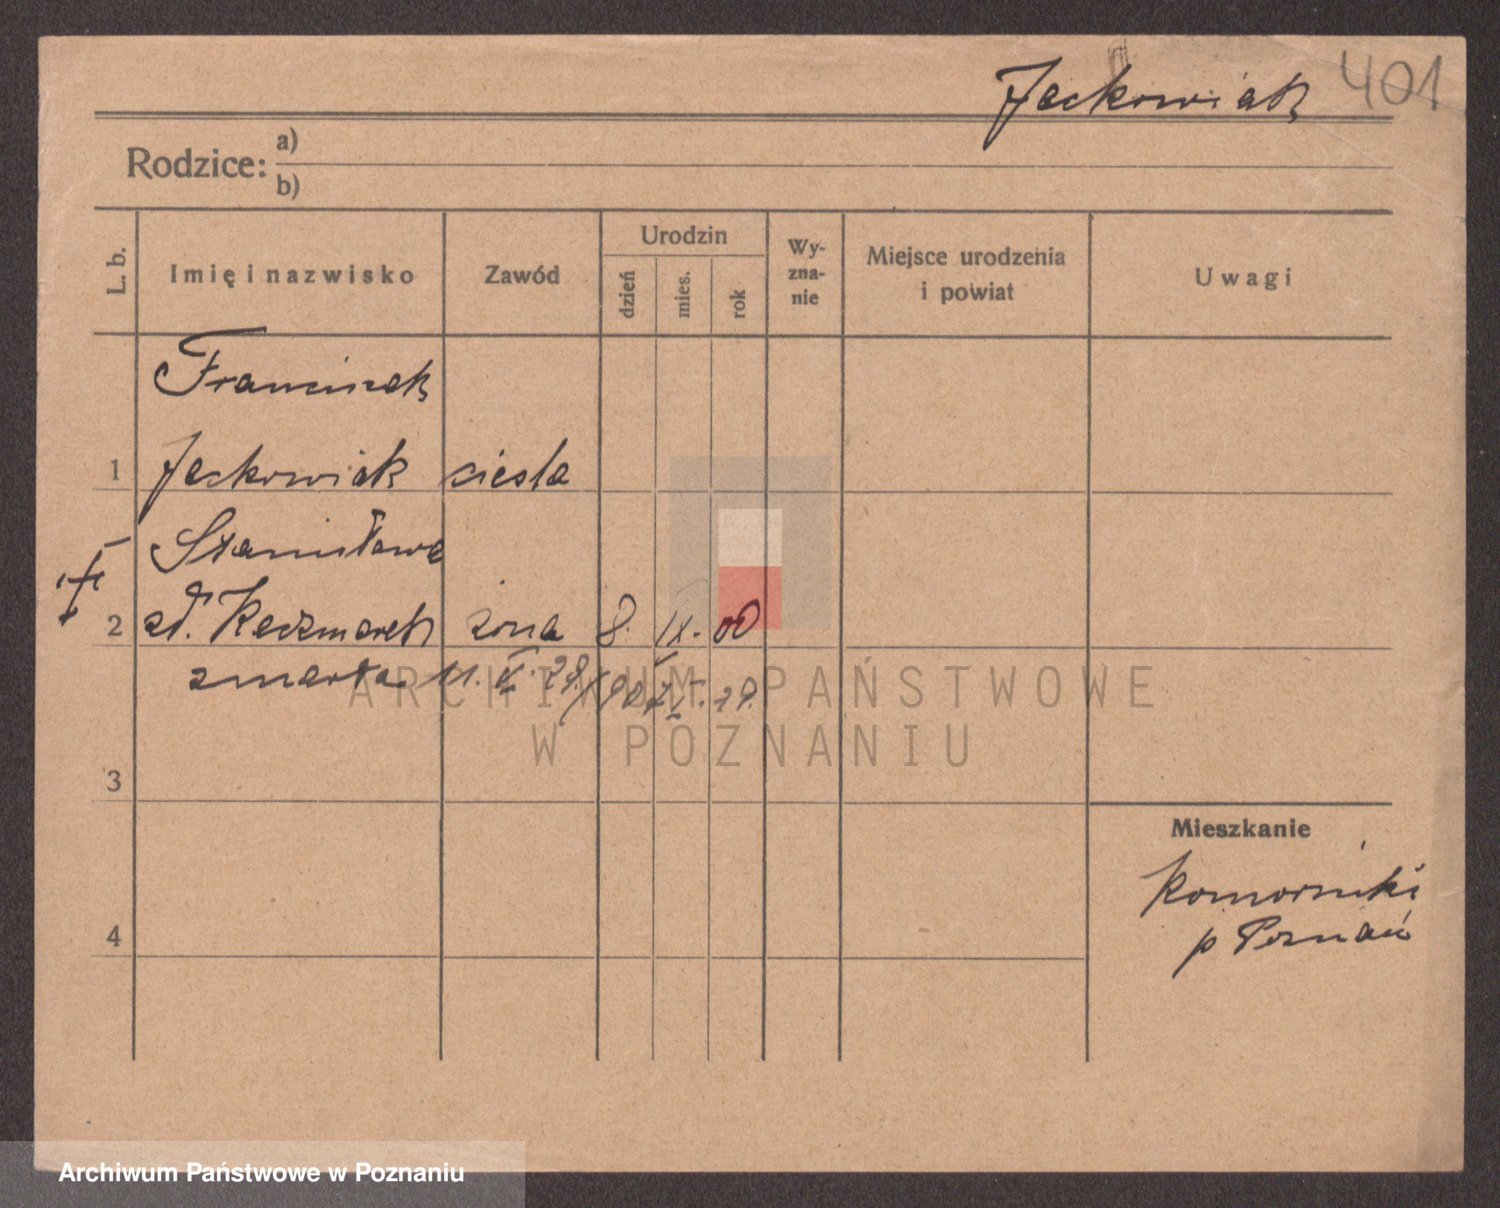 Jackowiak 401
Rodzice: a)
b)
L. b. Imię i nazwisko Zawód Urodzin dzień mies. rok Wy-zna-nie Miejsce urodzenia i powiat Uwagi
Franciszek
1 Jackowiak ciesla
Stanisława
2 zd. Kaczmarek żona 8. IX. 00
zmarła 11. V. 29.
ARCHIWUM PAŃSTWOWE
W POZNANIU
3
Mieszkanie
Komorniki
p Poznań
4
Archiwum Państwowe w Poznaniu